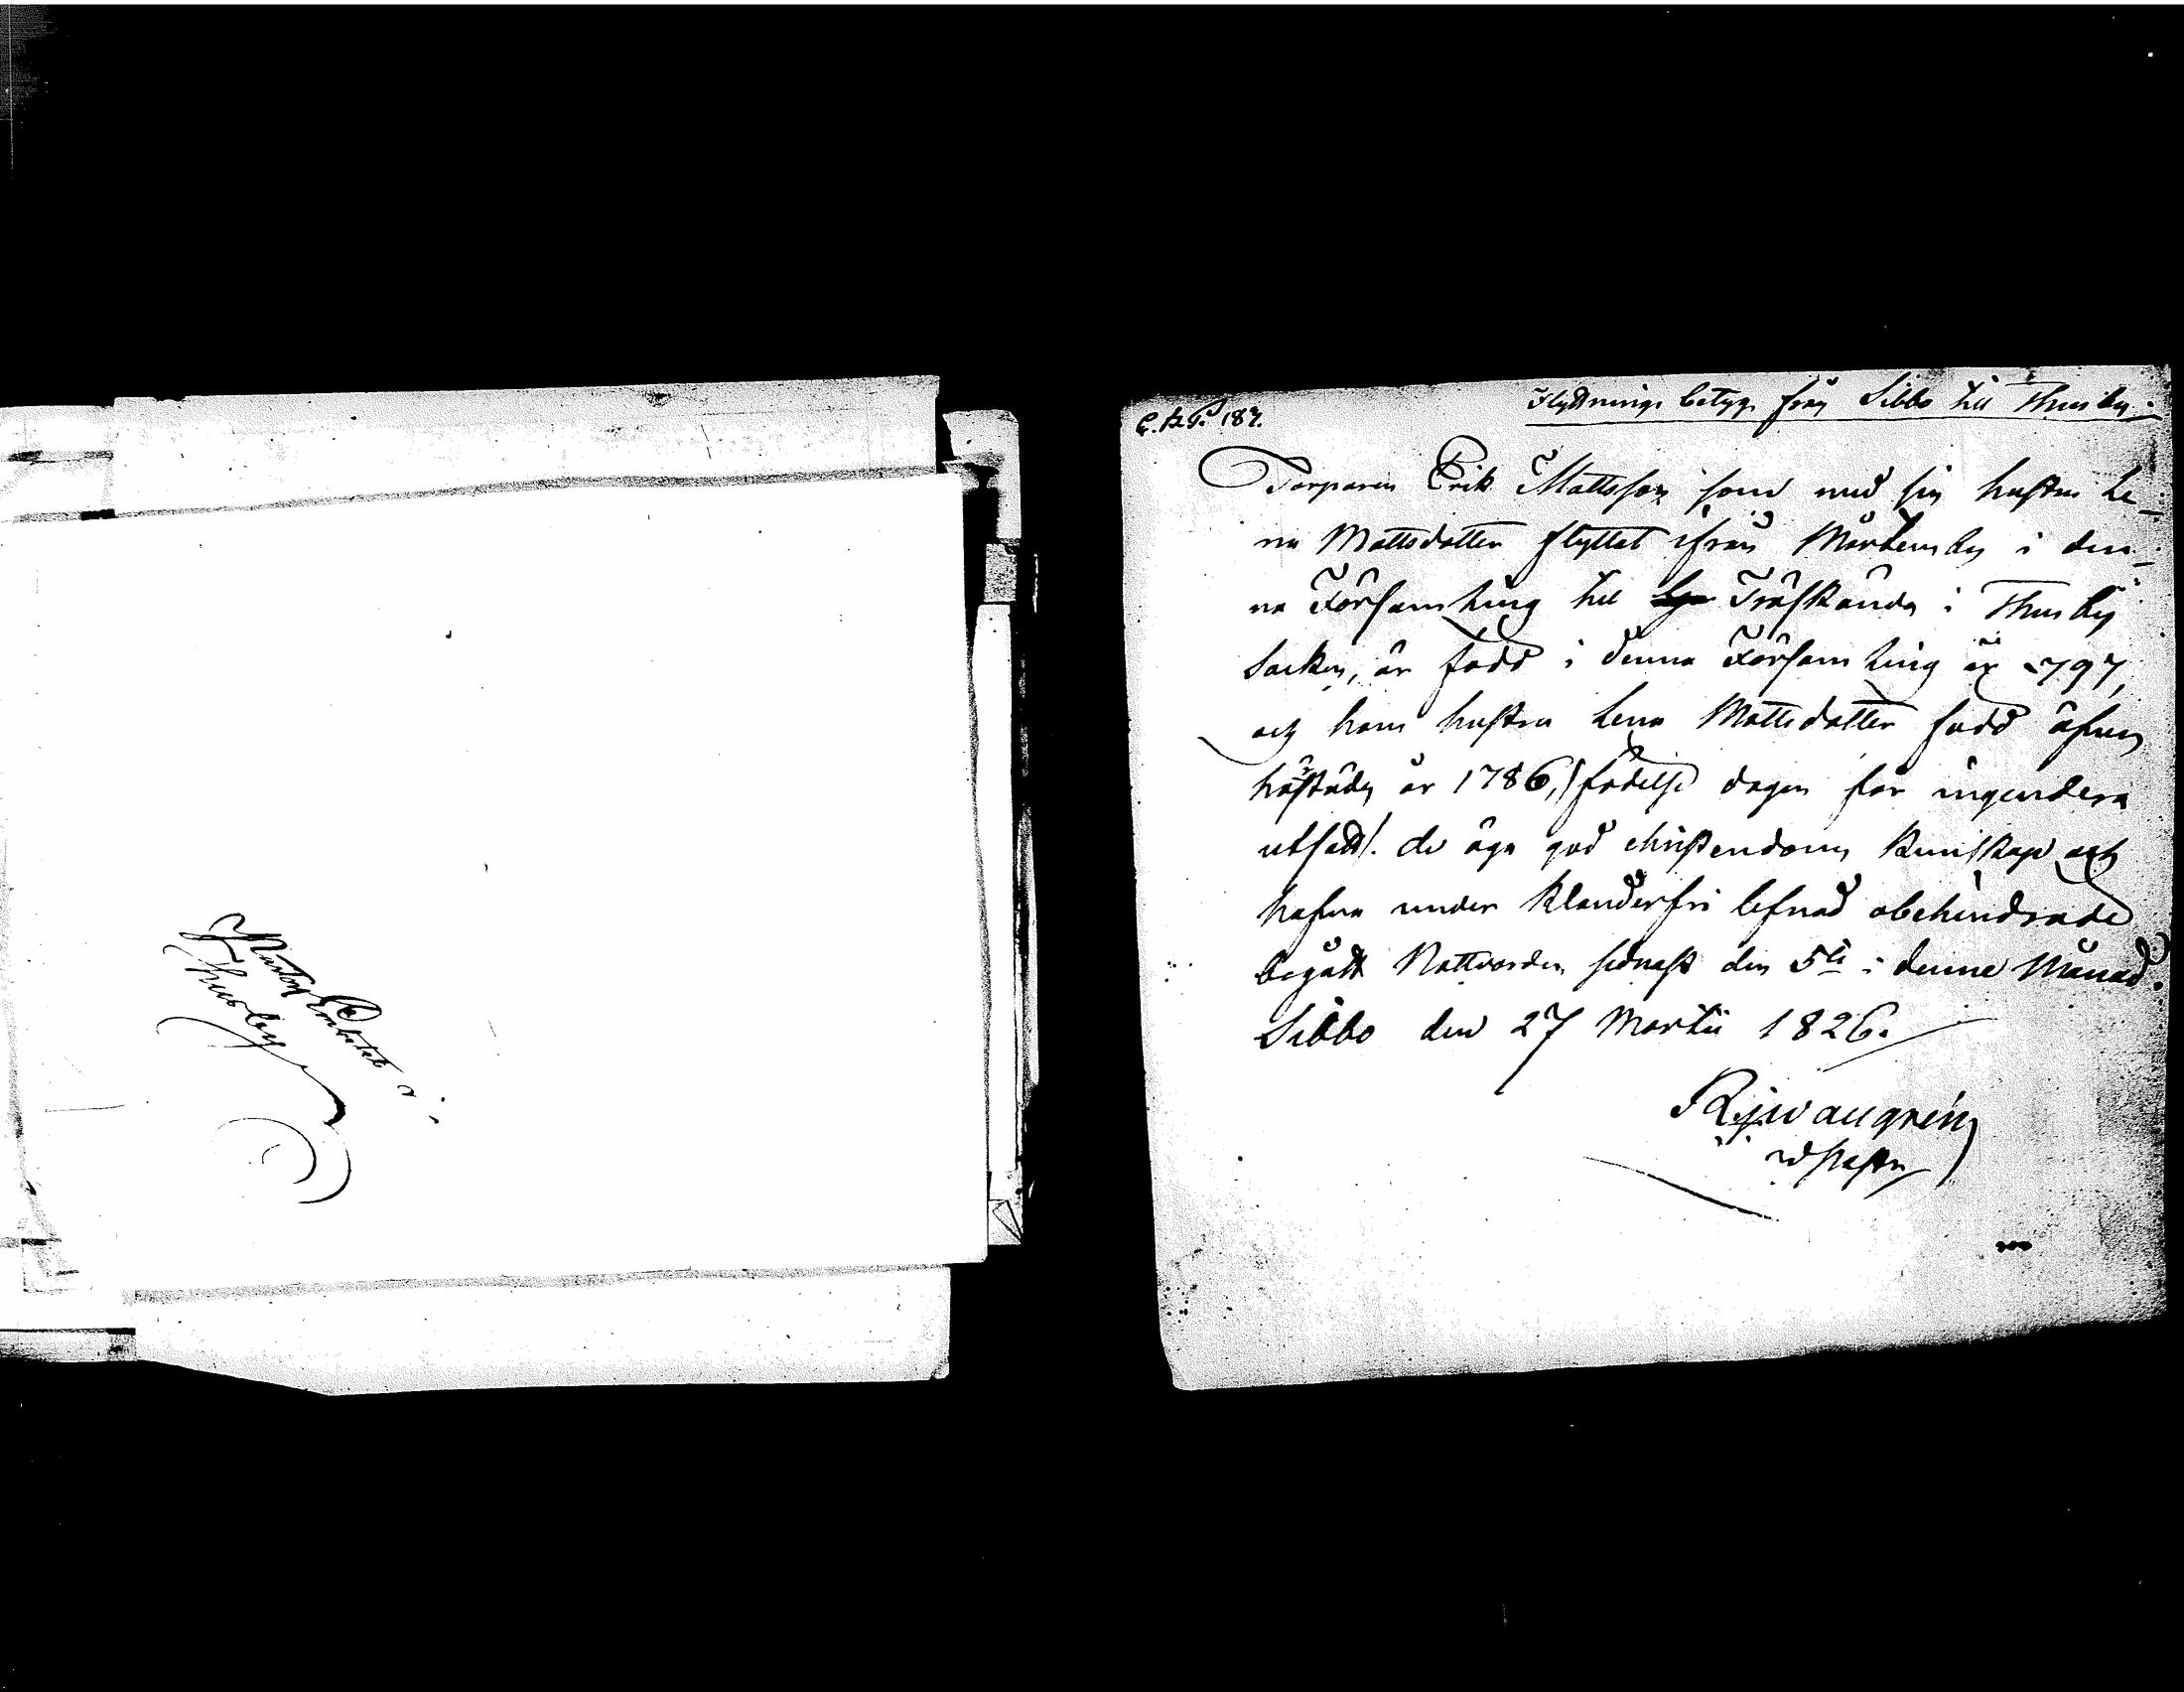 Pastors Embetet i
Thusby
Flyttnings betyg från Sibbo till Thusby.
C.B.P. 187.
Torparen Erik Mattsson som med sin hustru Le-
na Mattsdotter flyttat ifrån Mårtensby i den-
na Församling till Träskända i Thusby
Socken, är född i denna Församling år 1797,
och hans hustru Lena Mattsdotter född äfven
härstädes år 1786, (födelse dagen för ingendera
utsatt). de äga god christendoms kunskap och
hafva under klanderfri lefnad obehindrade
begått Nattvarden sednast den 5te i denne Månad.
Sibbo den 27 Martii 1826.
v Pastor